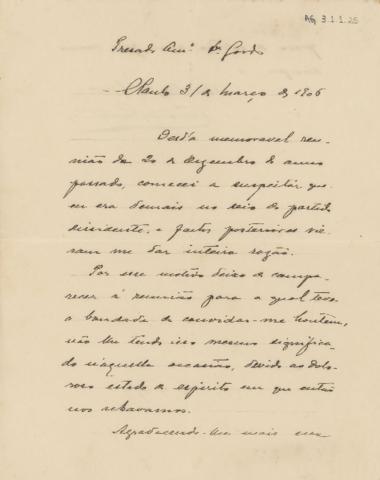 AG 3.1.1.25
Presado Amº. Dr. Gordo
S. Paulo 31 de Março de 1906
Desd'a memoravel reu-
nião de 20 de Dezembro do anno
passado, comecei a suspeitar que
eu era demais no seio do partido
dissidente, e factos posteriores vie-
ram me dar inteira razão.
Por esse motivo deixo de compa-
recer á reunião para a qual teve
a bondade de convidar-me hontem,
não lhe tendo isso mesmo significa-
do n'aquella occasião, devido ao dolo-
roso estado de espirito em que então
nos achavamos.
Agradecendo-lhe mais uma